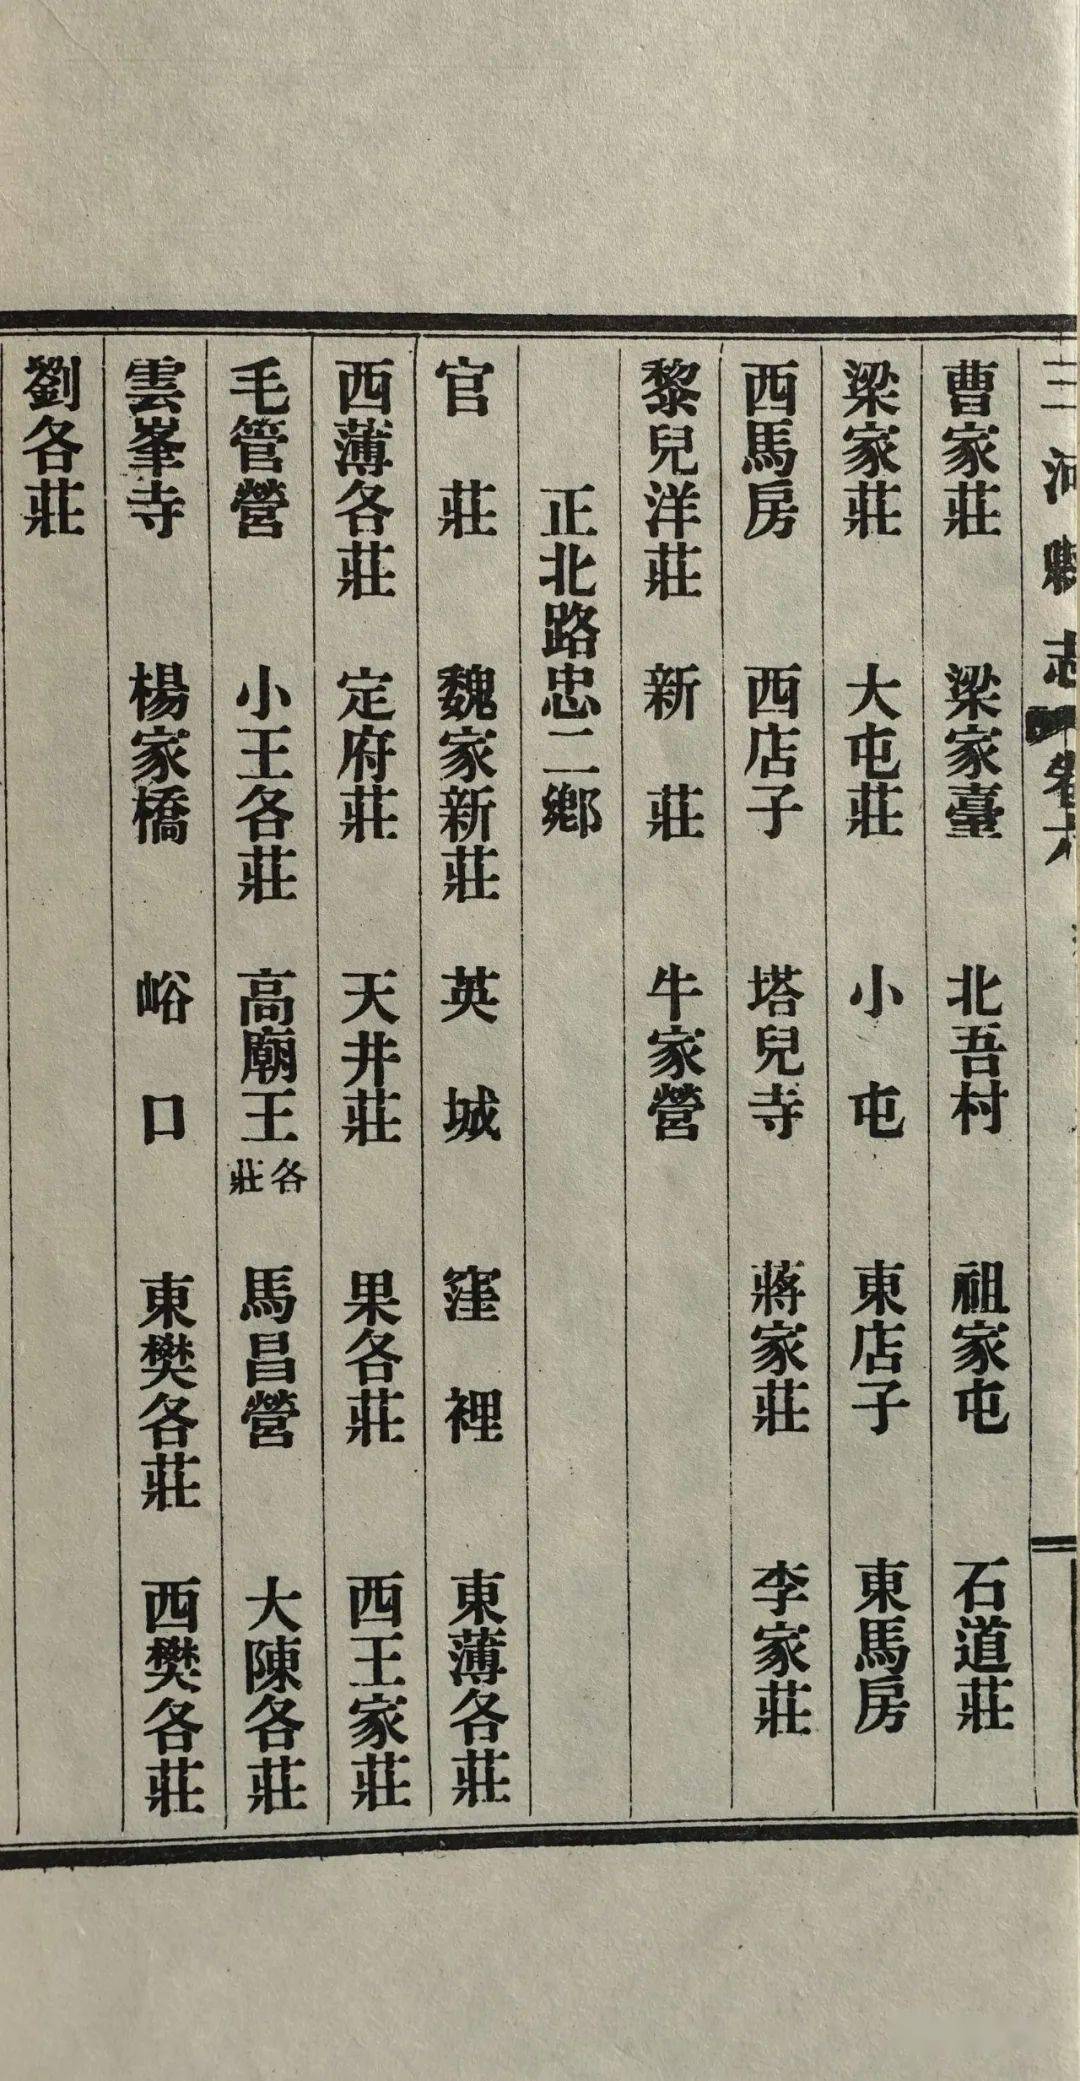 三河縣志 卷六
曹家莊 梁家臺 北吾村 祖家屯 石道莊
梁家莊 大屯莊 小屯 東店子 東馬房
西馬房 西店子 塔兒寺 蔣家莊 李家莊
黎兒洋莊 新莊 牛家營
正北路忠二鄉
官莊 魏家新莊 英城 窪裡 東薄各莊
西薄各莊 定府莊 天井莊 果各莊 西王家莊
毛管營 小王各莊 高廟王各莊 馬昌營 大陳各莊
雲峯寺 楊家橋 峪口 東樊各莊 西樊各莊
劉各莊